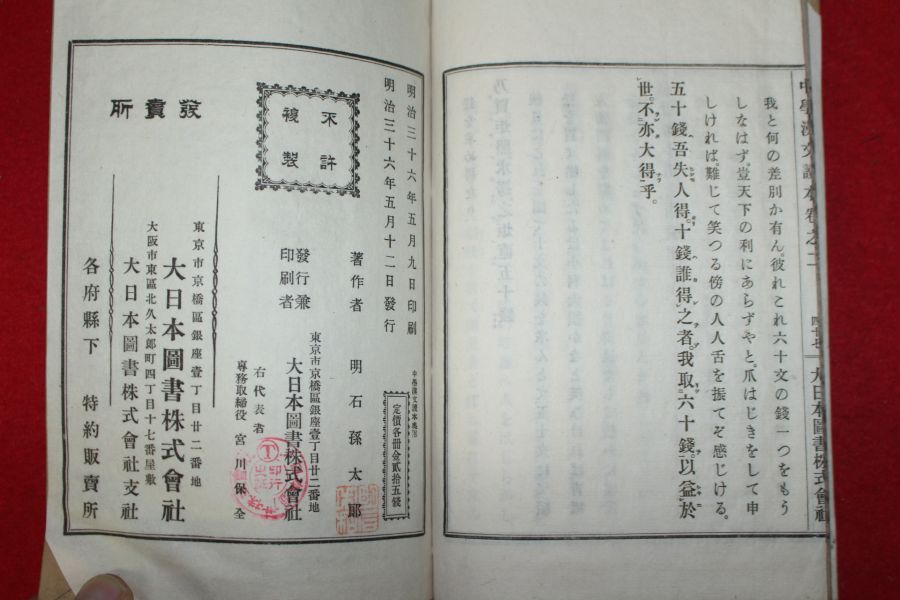 中學漢文讀本卷之二
我と何の差別か有ん。彼れこれ六十文の錢一つをもう
しなはず。豈天下の利にあらずやと。爪はじきをして申
しければ。難じて笑つる傍の人人舌を振てぞ感じける。
五十錢吾失人得。十錢誰得之者。我取六十錢。以益於
世。不亦大得乎。
大日本圖書株式會社
明治三十六年五月九日印刷
明治三十六年五月十二日發行
不許
複製
中學漢文讀本
定價各冊金貳拾五錢
著作者 明石孫太郎
發行兼
印刷者
東京市京橋區銀座壹丁目廿二番地
大日本圖書株式會社
右代表者
專務取締役 宮川保全
發賣所
東京市京橋區銀座壹丁目廿二番地
大日本圖書株式會社
大阪市東區北久太郎町四丁目十七番屋敷
大日本圖書株式會社支社
各府縣下 特約販賣所